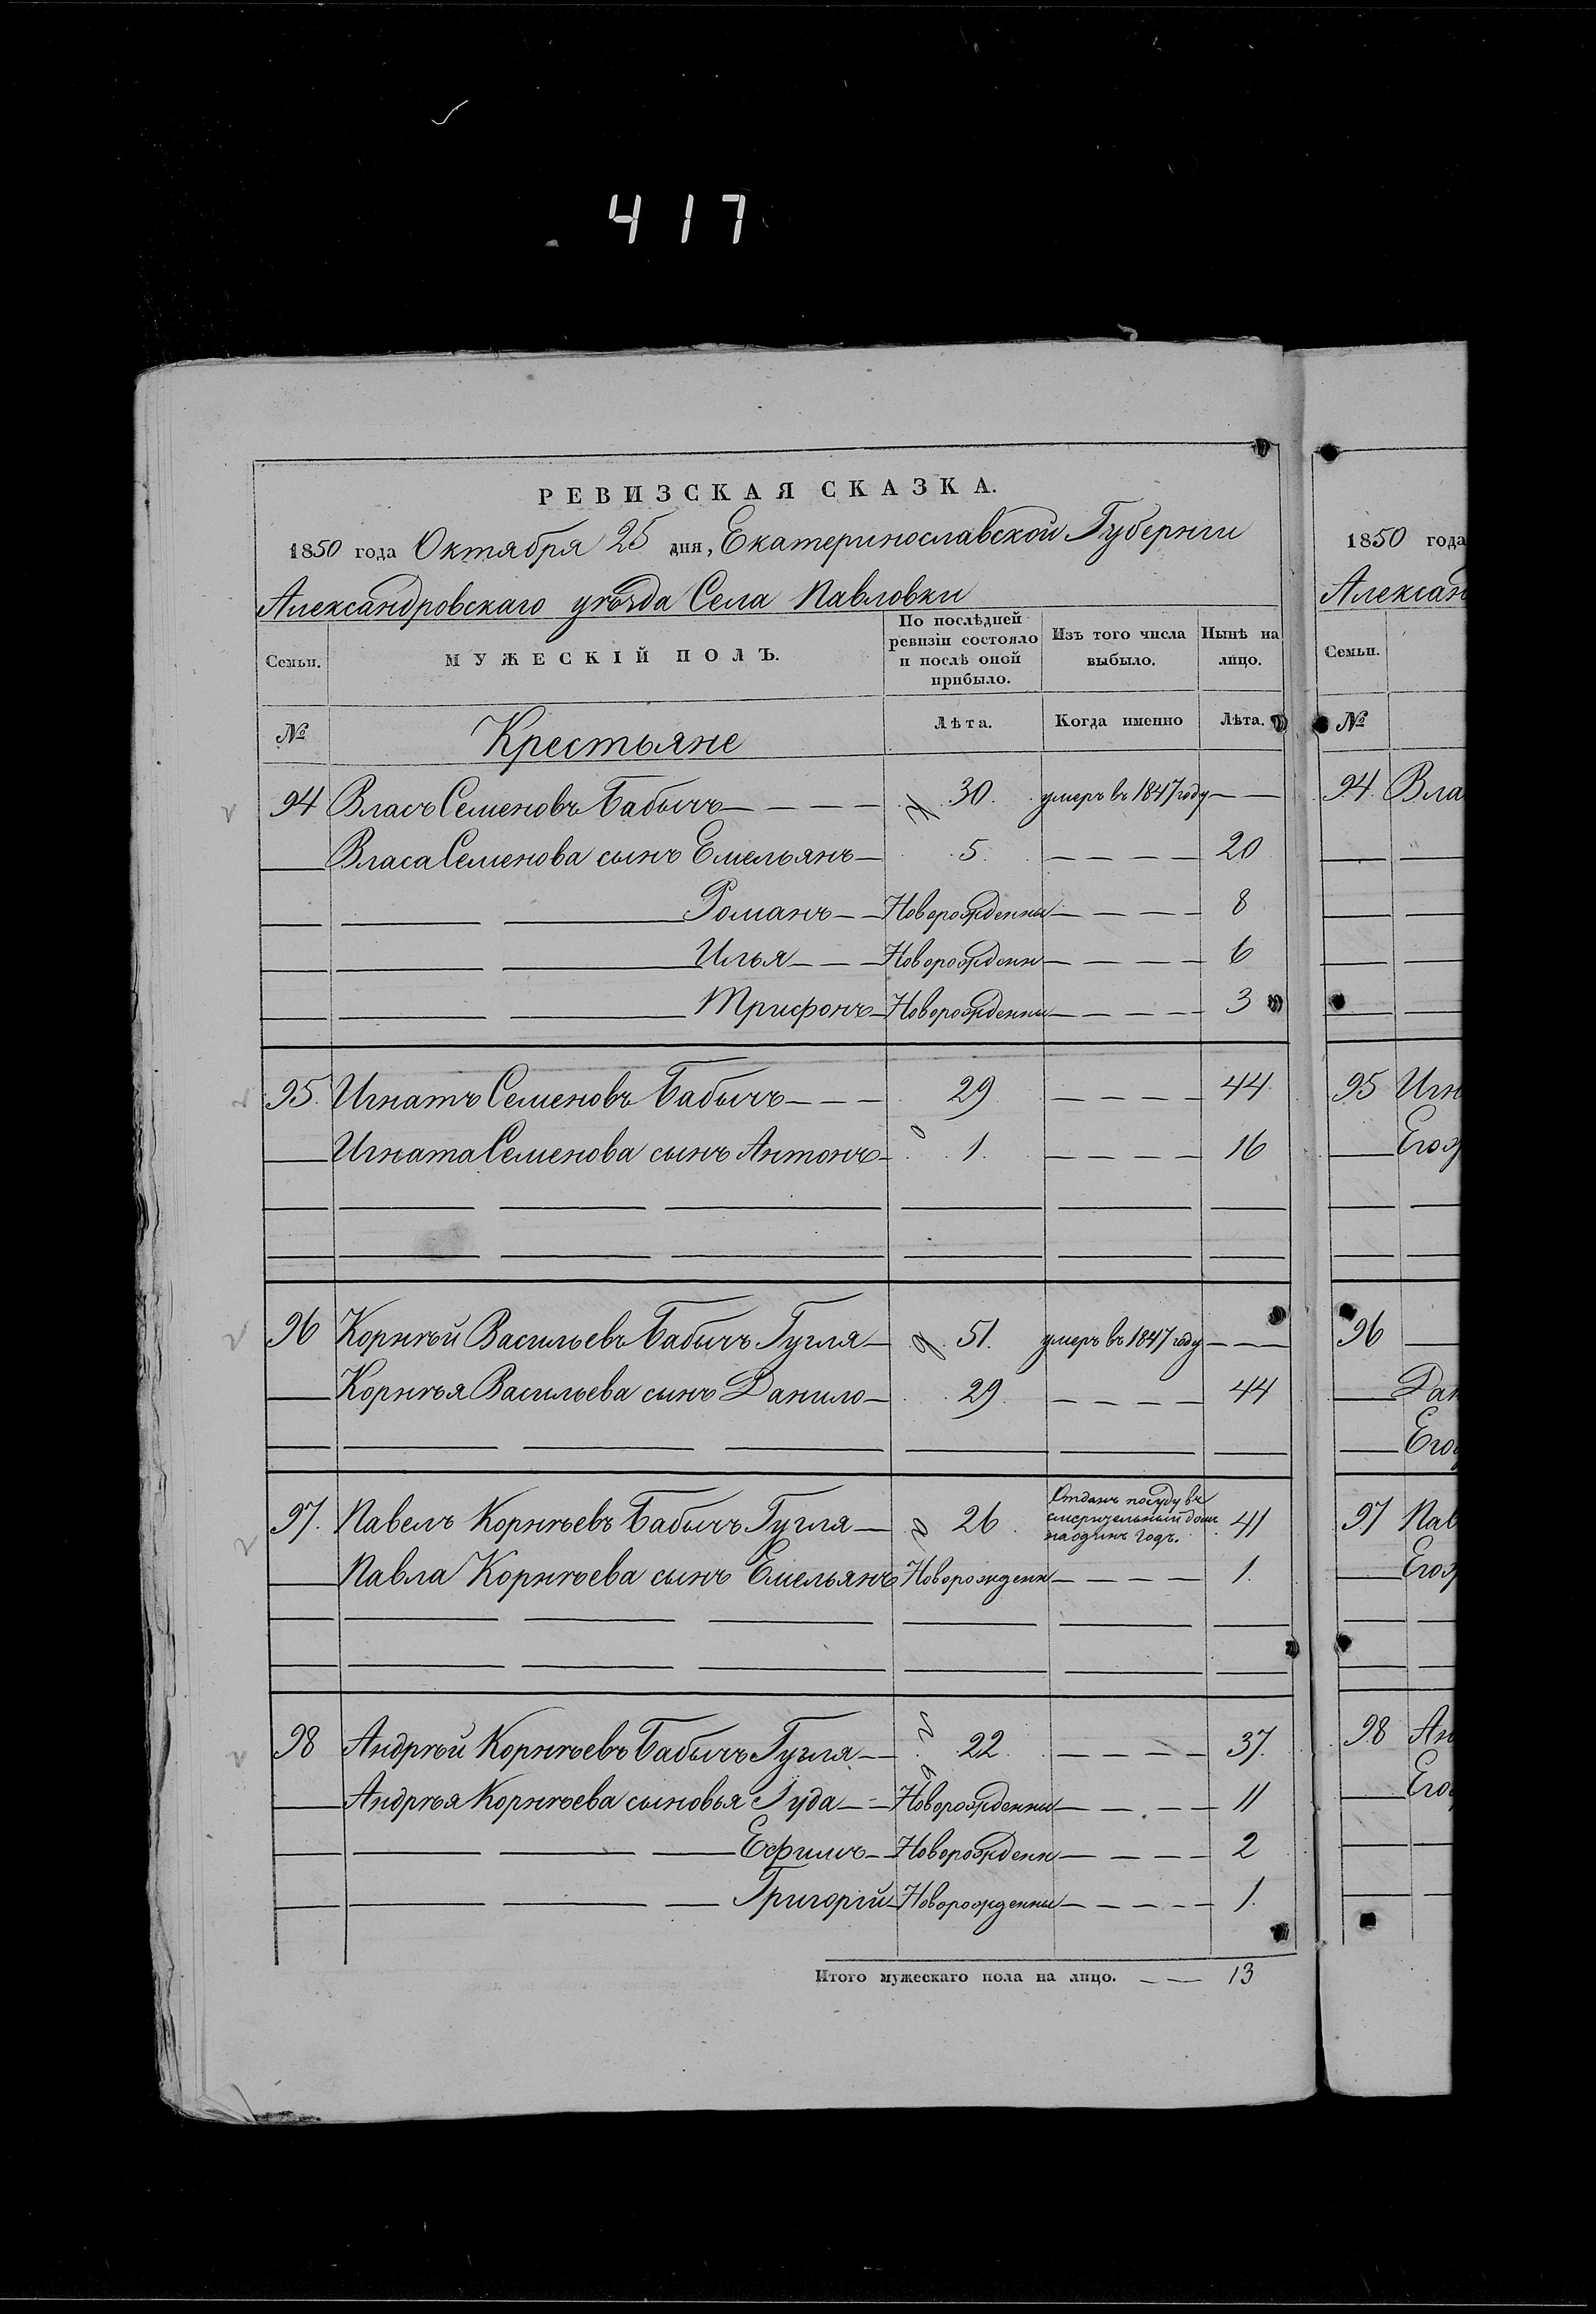 417
РЕВИЗСКАЯ СКАЗКА.
1850 года Октября 25 дня, Екатеринославской Губернiи
Александровскаго уѣзда Села Павловки
Семьи. МУЖЕСКІЙ ПОЛЪ. По послѣдней ревизіи состояло и послѣ оной прибыло. Изъ того числа выбыло. Нынѣ на лицо.
№ Крестьяне Лѣта. Когда именно Лѣта.
94 Власъ Семеновъ Бабычъ 30. умеръ въ 1847 году
Власа Семенова сынъ Емельянъ 5. 20
Романъ Новорожденны 8
Илья Новорожденн 6
Трифонъ Новорожденны 3
95. Игнатъ Семеновъ Бабычъ 29 44
Игната Семенова сынъ Антонъ 1. 16
96 Корнѣй Васильевъ Бабычъ Гугля 51. умеръ въ 1847 году
Корнѣя Васильева сынъ Данило 29 44
97. Павелъ Корнѣевъ Бабычъ Гугля 26 Отданъ посуду въ смерительный домъ на одинъ годъ. 41
Павла Корнѣева сынъ Емельянъ Новорожденн 1.
98 Андрѣй Корнѣевъ Бабычъ Гугля 22 37.
Андрѣя Корнѣева сыновья Iуда Новорожденны 11
Ефимъ Новорожденн 2
Григорій Новорожденны 1.
Итого мужескаго пола на лицо. 13
1850 года
Алексан
Семьи.
№
94. Вла
95 Игн
Егож
96
Дан
Его
97 Пав
Егож
98 Ан
Его